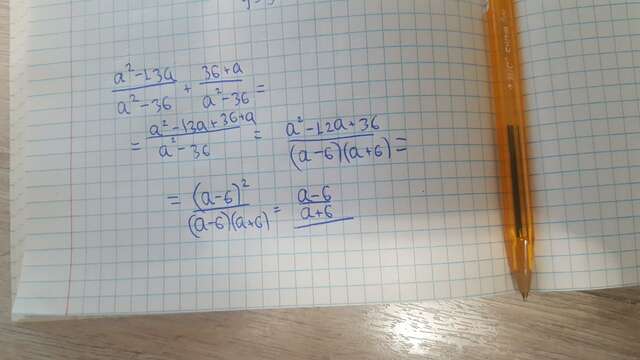 (a² - 13a)/(a² - 36) + (36 + a)/(a² - 36) =
= (a² - 13a + 36 + a)/(a² - 36) = (a² - 12a + 36)/((a - 6)(a + 6)) =
= (a - 6)²/((a - 6)(a + 6)) = (a - 6)/(a + 6)